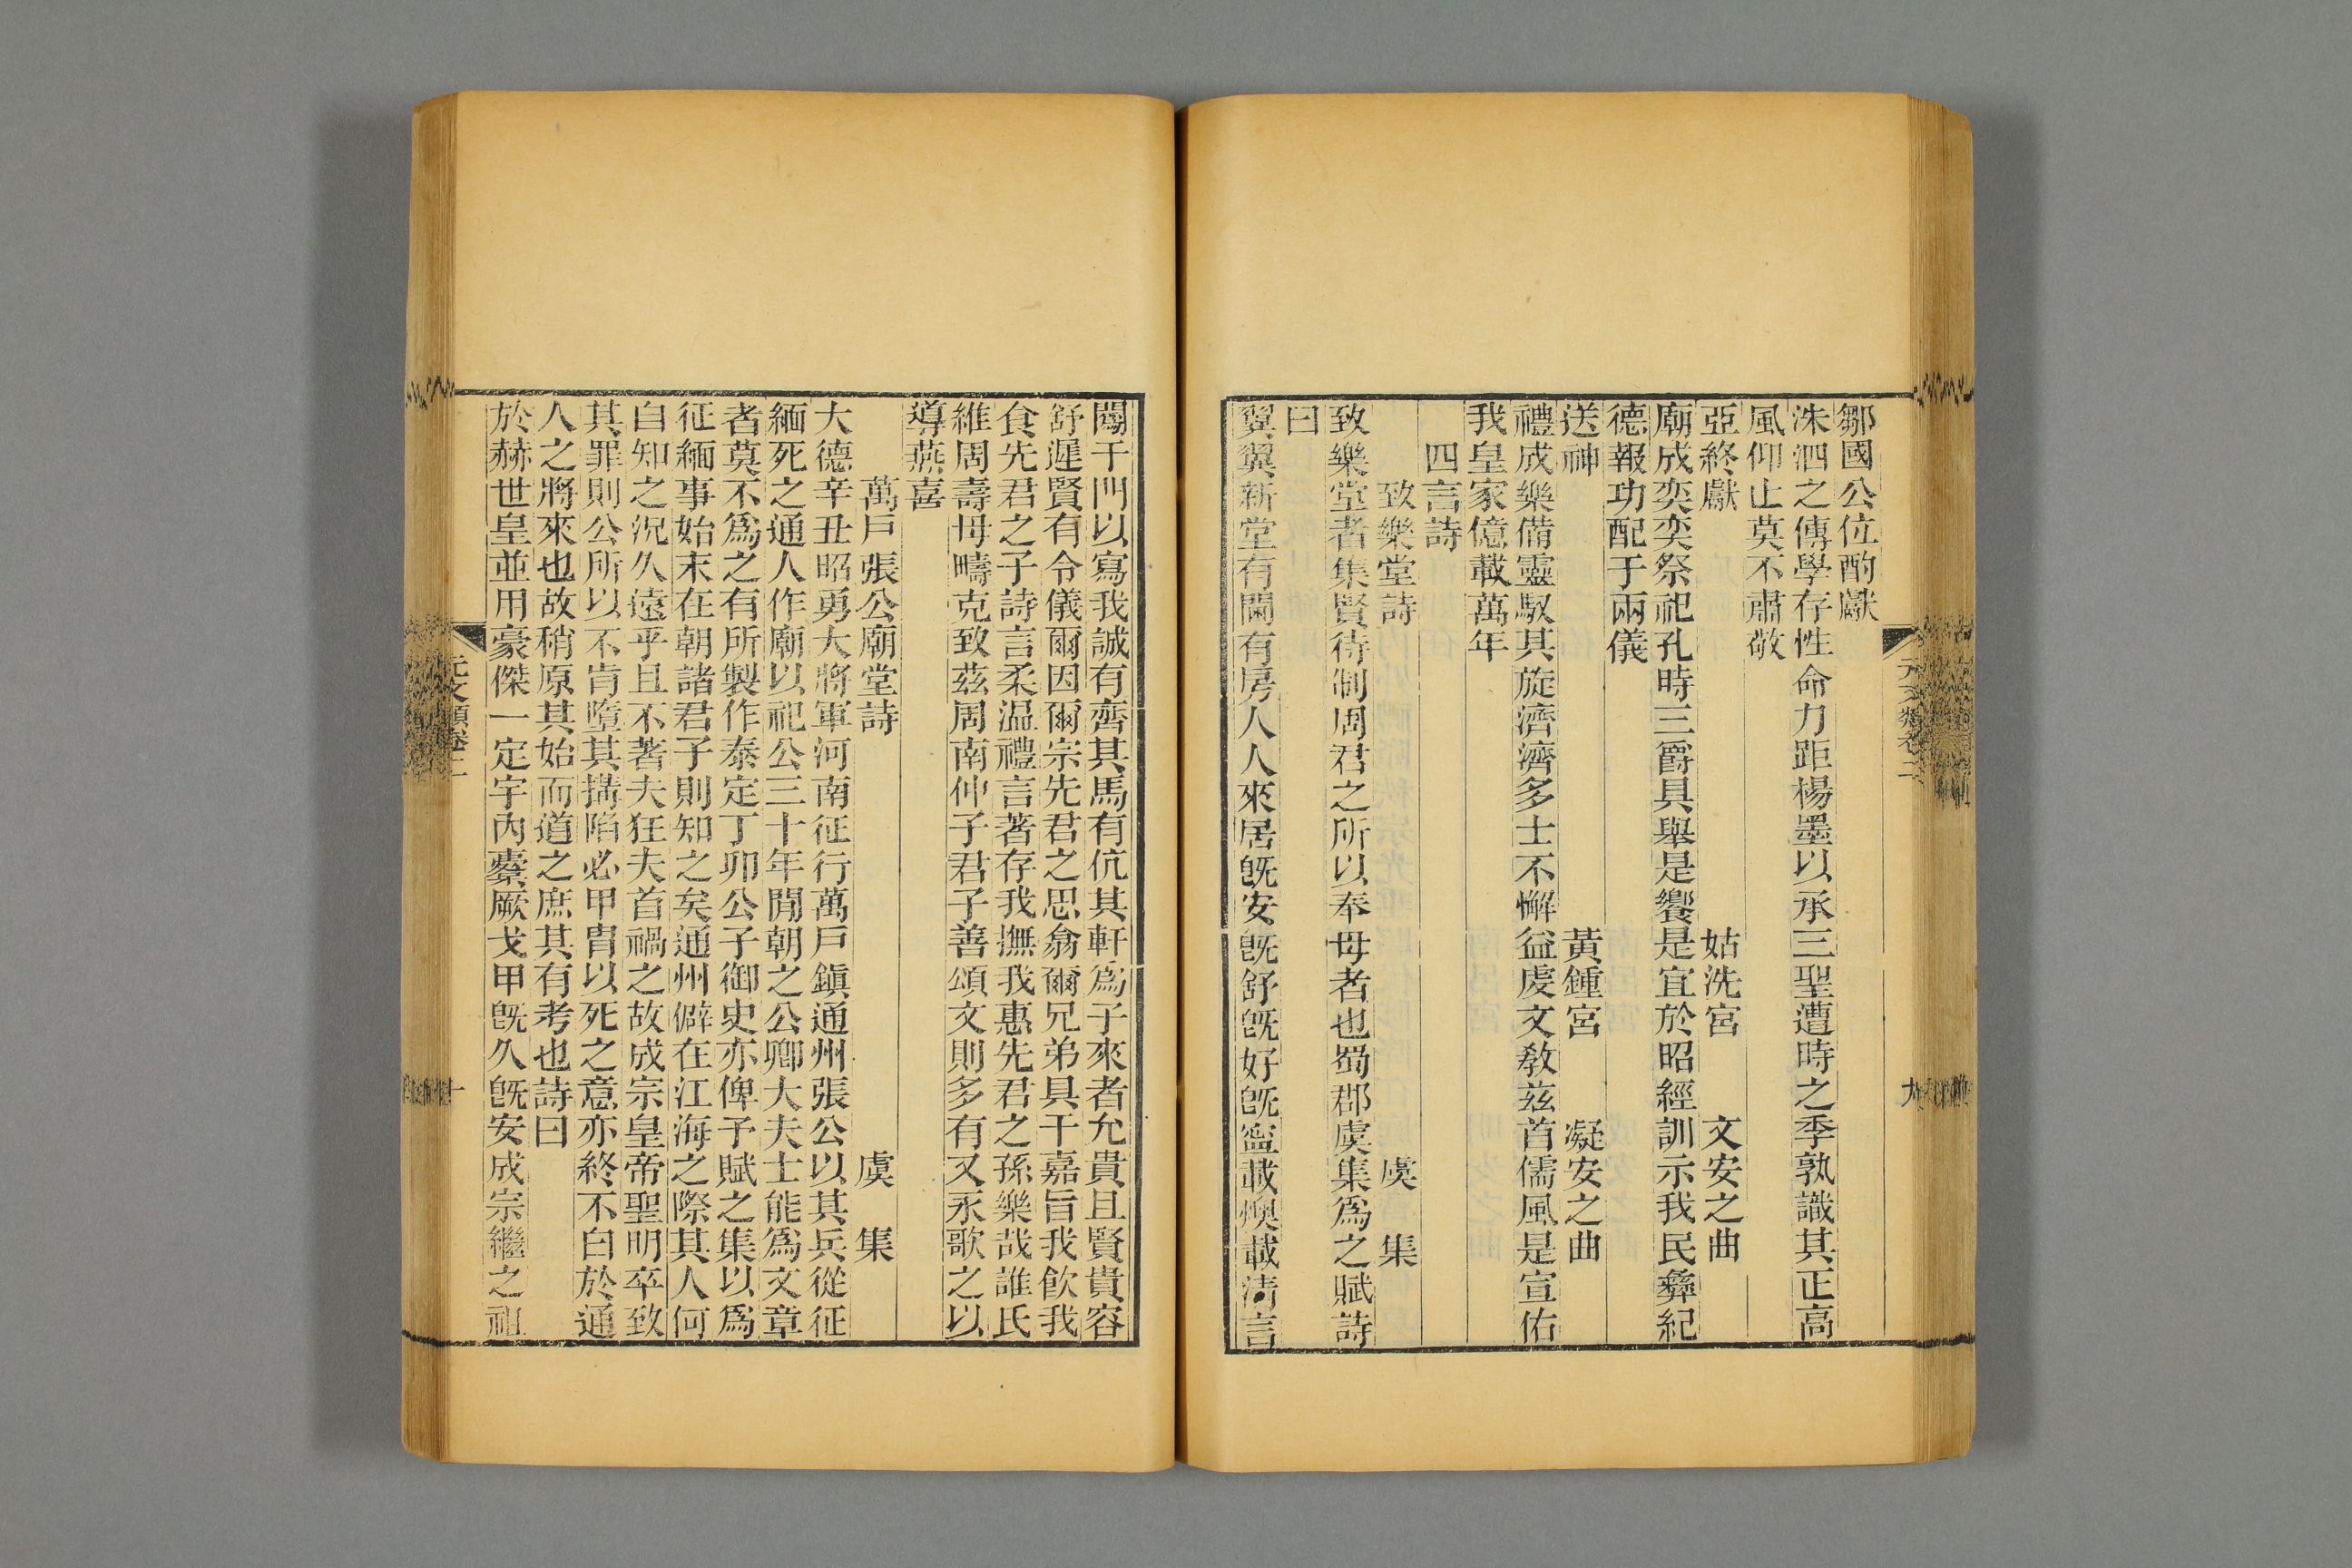 鄒國公位酌獻
洙泗之傳學存性命力距楊墨以承三聖遭時之季孰識其正高
風仰止莫不肅敬
亞終獻　姑洗宮　文安之曲
廟成奕奕祭祀孔時三爵具舉是饗是宜於昭經訓示我民彝紀
德報功配于兩儀
送神　黃鍾宮　凝安之曲
禮成樂備靈馭其旋濟濟多士不懈益虔文敎茲首儒風是宣佑
我皇家億載萬年
四言詩
致樂堂詩　虞　集
致樂堂者集賢待制周君之所以奉母者也蜀郡虞集爲之賦詩
曰
翼翼新堂有閫有房人人來居旣安旣舒旣好旣寧載燠載淸言
元文類卷二
九
閟于門以寫我誠有齊其馬有伉其軒爲子來者允貴且賢貴容
舒遲賢有令儀爾因爾宗先君之思翕爾兄弟具干嘉旨我飮我
食先君之子詩言柔温禮言著存我撫我惠先君之孫樂哉誰氏
維周壽母疇克致茲周南仲子君子善頌文則多有又永歌之以
導燕喜
萬戶張公廟堂詩　虞　集
大德辛丑昭勇大將軍河南征行萬戶鎭通州張公以其兵從征
緬死之通人作廟以祀公三十年閒朝之公卿大夫士能爲文章
者莫不爲之有所製作泰定丁卯公子御史亦俾予賦之集以爲
征緬事始末在朝諸君子則知之矣通州僻在江海之際其人何
自知之況久遠乎且不著夫狂夫首禍之故成宗皇帝聖明卒致
其罪則公所以不肯墮其搆陷必甲胄以死之意亦終不白於通
人之將來也故稍原其始而道之庶其有考也詩曰
於赫世皇並用豪傑一定宇內櫜厥戈甲旣久旣安成宗繼之祖
元文類卷二
十